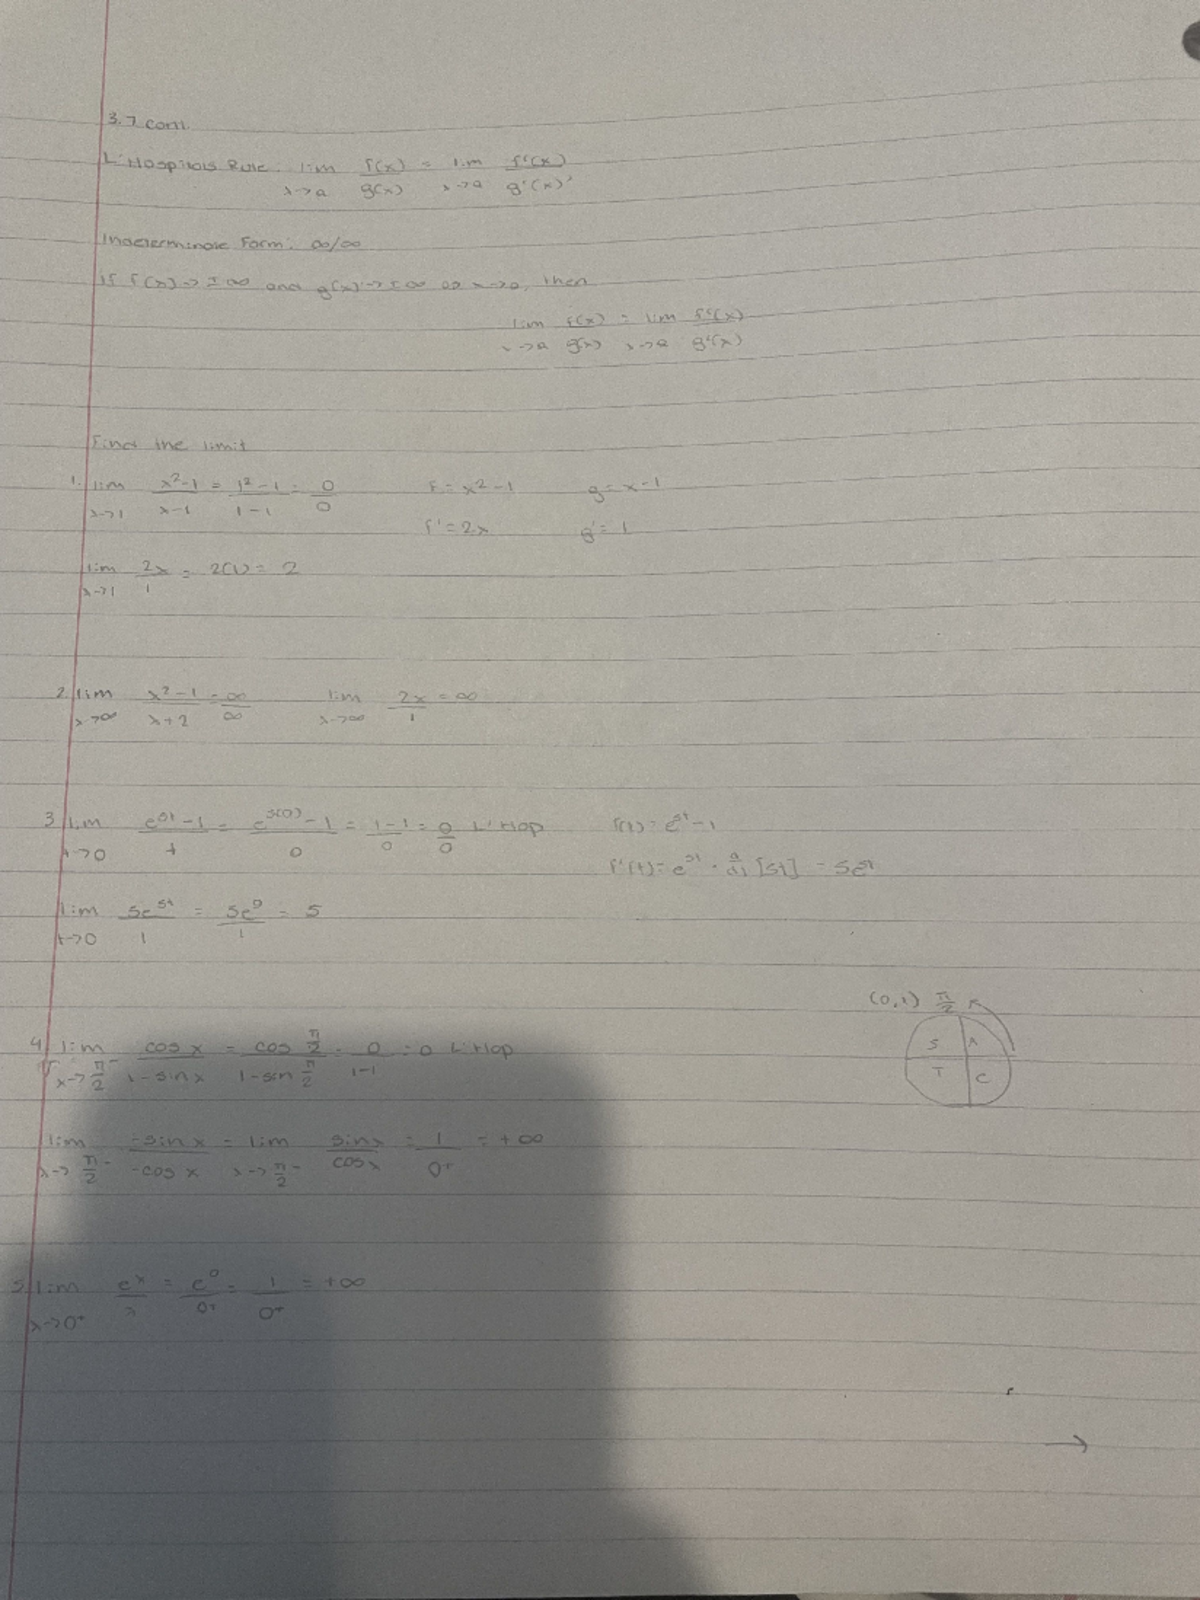 3.7 cont.
L'Hospitals Rule: lim x→a f(x)/g(x) = lim x→a f'(x)/g'(x)'
Indeterminate Form: ∞/∞
if f(x)→±∞ and g(x)→±∞ as x→a, then
lim x→a f(x)/g(x) = lim x→a f'(x)/g'(x)
Find the limit
1. lim x→1 x²-1/x-1 = 1²-1/1-1 = 0/0 f = x²-1 g = x-1
f' = 2x g' = 1
lim x→1 2x/1 = 2(1) = 2
2. lim x→∞ x²-1/x+2 = ∞/∞ lim x→∞ 2x/1 = ∞
3. lim t→0 e^5t-1/t = e^5(0)-1/0 = 1-1/0 = 0/0 L'Hop f(t) = e^5t-1
f'(t) = e^5t · d/dt [5t] = 5e^5t
lim t→0 5e^5t/1 = 5e^0/1 = 5
(0,1) π/2
S A
T C
4. lim x→π/2⁻ cos x/1-sin x = cos π/2/1-sin π/2 = 0/1-1 = 0 L'Hop
lim x→π/2⁻ -sin x/-cos x = lim x→π/2⁻ sin x/cos x = 1/0⁺ = +∞
5. lim x→0⁺ e^x/x = e^0/0⁺ = 1/0⁺ = +∞
→